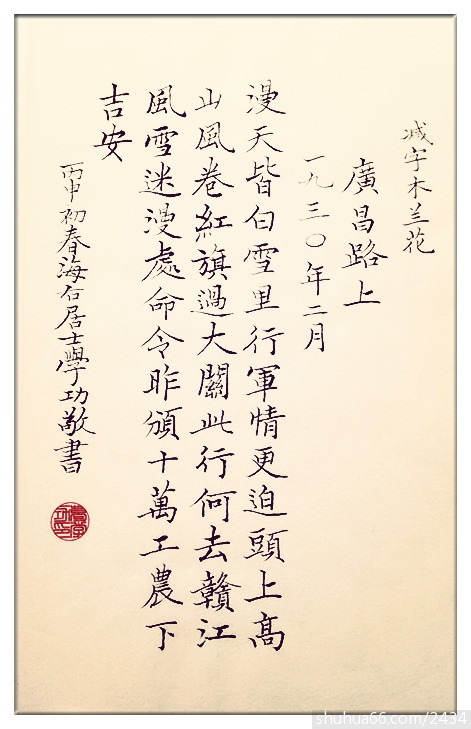 减字木兰花
廣昌路上
一九三〇年二月
漫天皆白雪里行軍情更迫頭上高
山風卷紅旗過大關此行何去贛江
風雪迷漫處命令昨頒十萬工農下
吉安
丙申初春海右居士學功敬書
shuhua66.com/2434